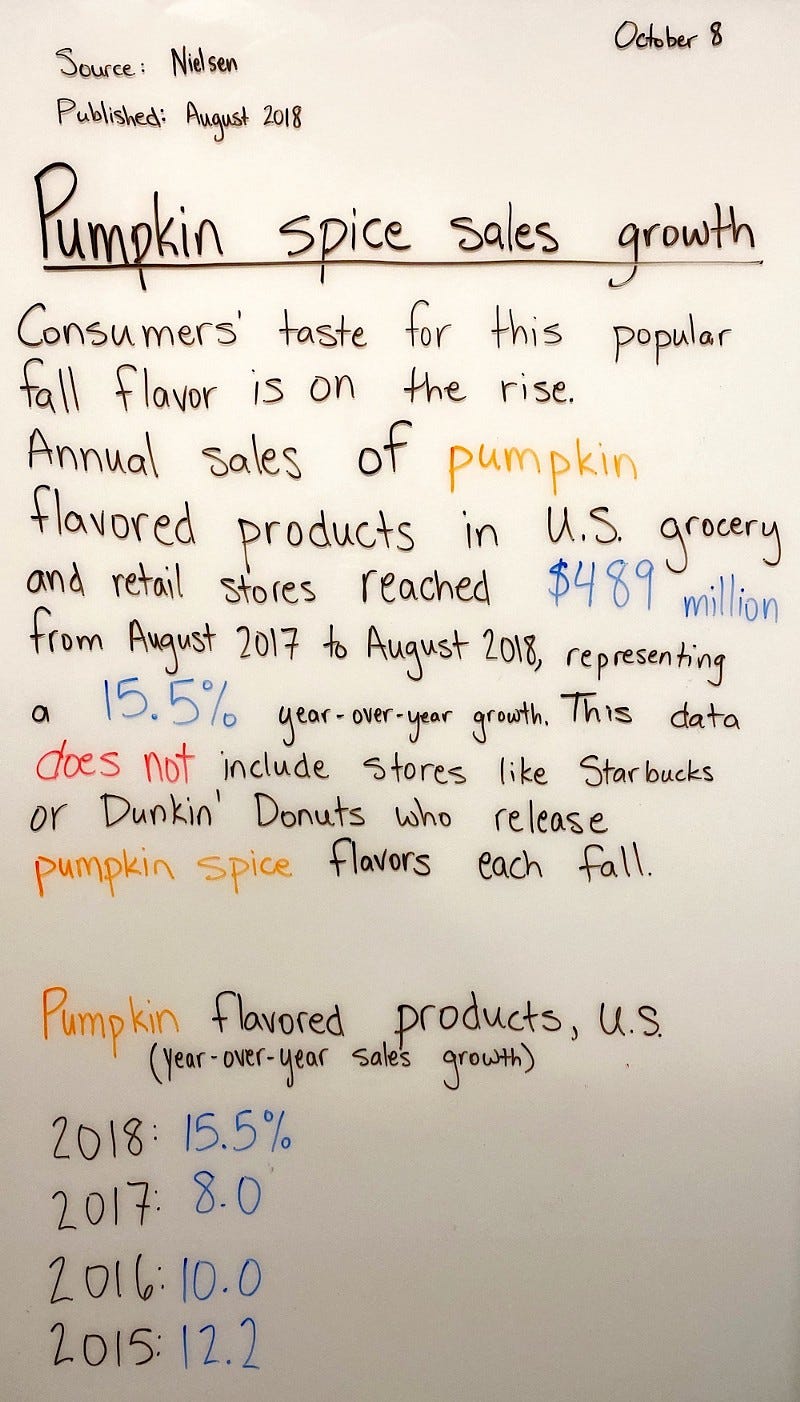 October 8
Source: Nielsen
Published: August 2018
Pumpkin spice sales growth
Consumers' taste for this popular
fall flavor is on the rise.
Annual sales of pumpkin
flavored products in U.S. grocery
and retail stores reached $489 million
from August 2017 to August 2018, representing
a 15.5% year-over-year growth. This data
does not include stores like Starbucks
or Dunkin' Donuts who release
pumpkin spice flavors each fall.
Pumpkin flavored products, U.S.
(year-over-year sales growth)
2018: 15.5%
2017: 8.0
2016: 10.0
2015: 12.2